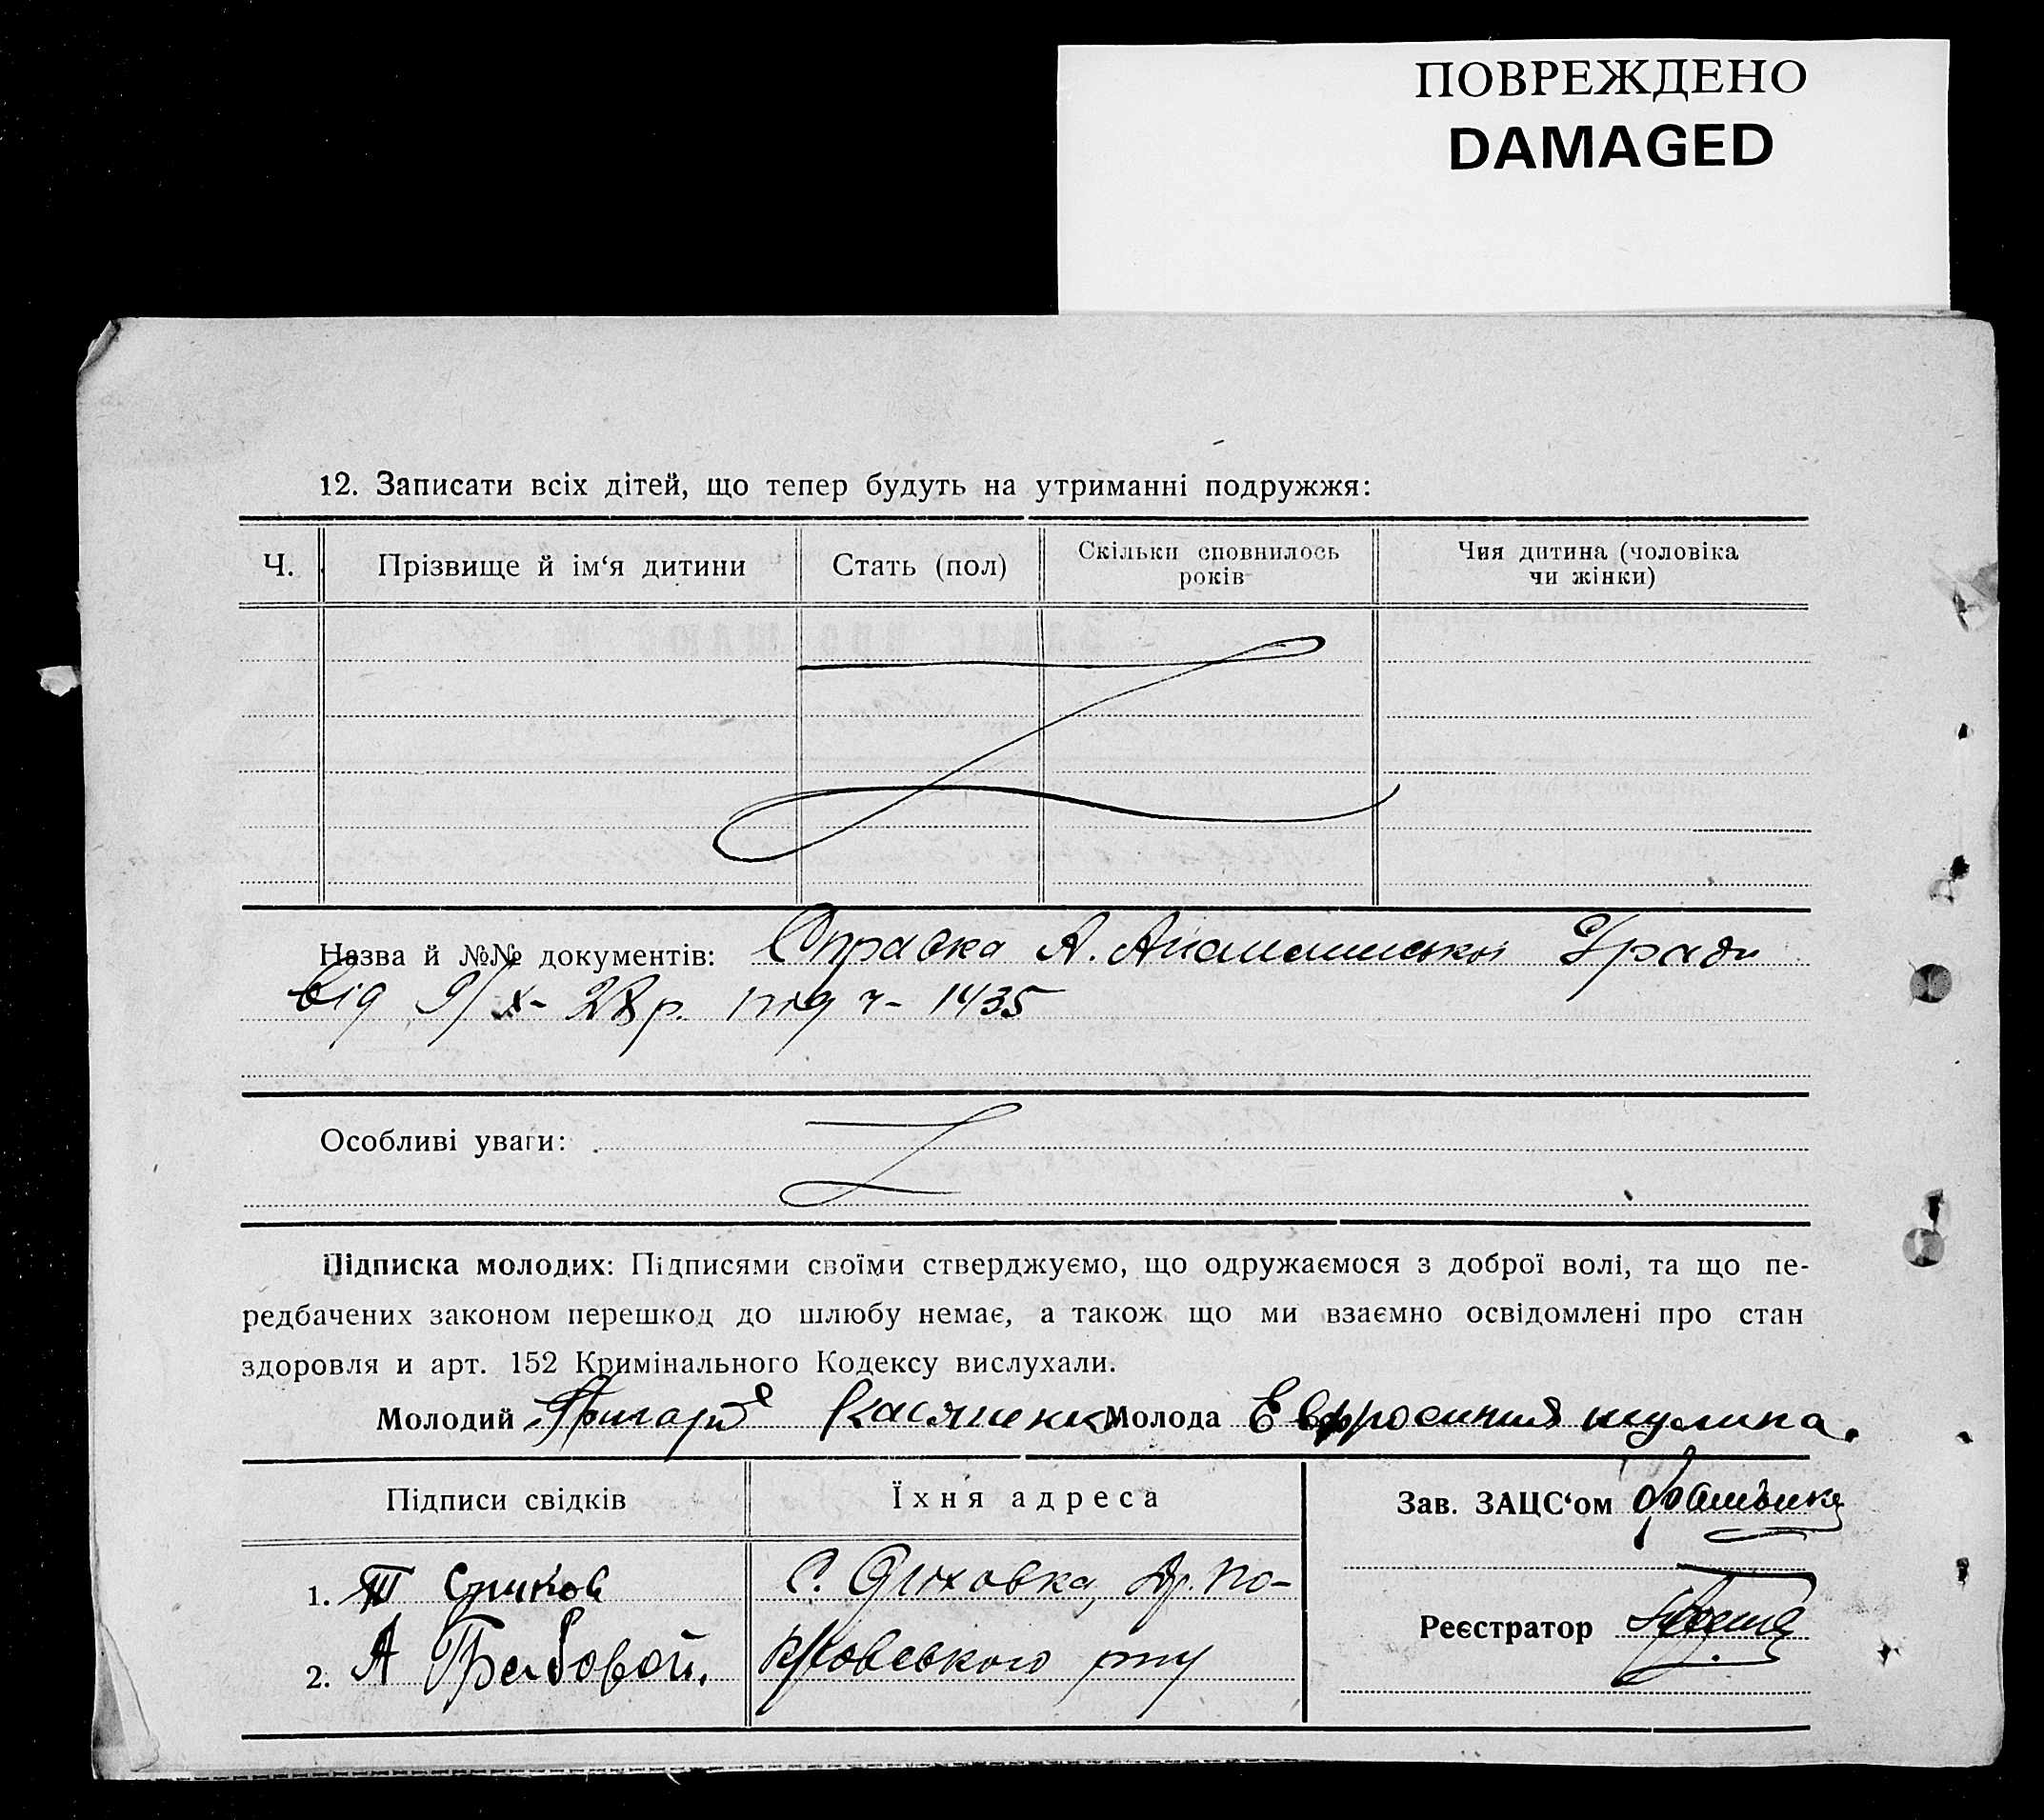 ПОВРЕЖДЕНО
DAMAGED
12. Записати всіх дітей, що тепер будуть на утриманні подружжя:
Ч. Прізвище й ім‘я дитини Стать (пол) Скільки сповнилось років Чия дитина (чоловіка чи жінки)
Назва й №№ документів: Справка А.
від 9/X- 28 р. під ч- 1435
Особливі уваги:
Підписка молодих: Підписями своїми стверджуємо, що одружаємося з доброї волі, та що пе-
редбачених законом перешкод до шлюбу немає, а також що ми взаємно освідомлені про стан
здоровля и арт. 152 Кримінального Кодексу вислухали.
Молодий Касяненко Молода Евфросиния шулипа.
Підписи свідків Їхня адреса Зав. ЗАЦС‘ом
1. С.
Реєстратор
2. А